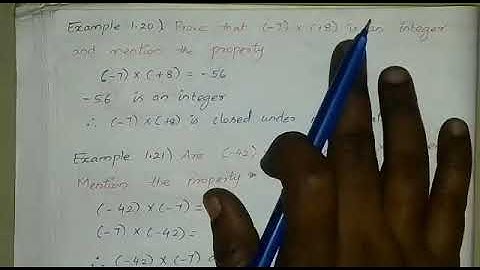 Example 1.20) Prove that (-7) × (+8) is an integer
and mention the property
(-7) × (+8) = -56
-56 is an integer
∴ (-7) × (+8) is closed under
Example 1.21) Are (-42)
Mention the property
(-42) × (-7) =
(-7) × (-42) =
∴ (-42) × (-7)